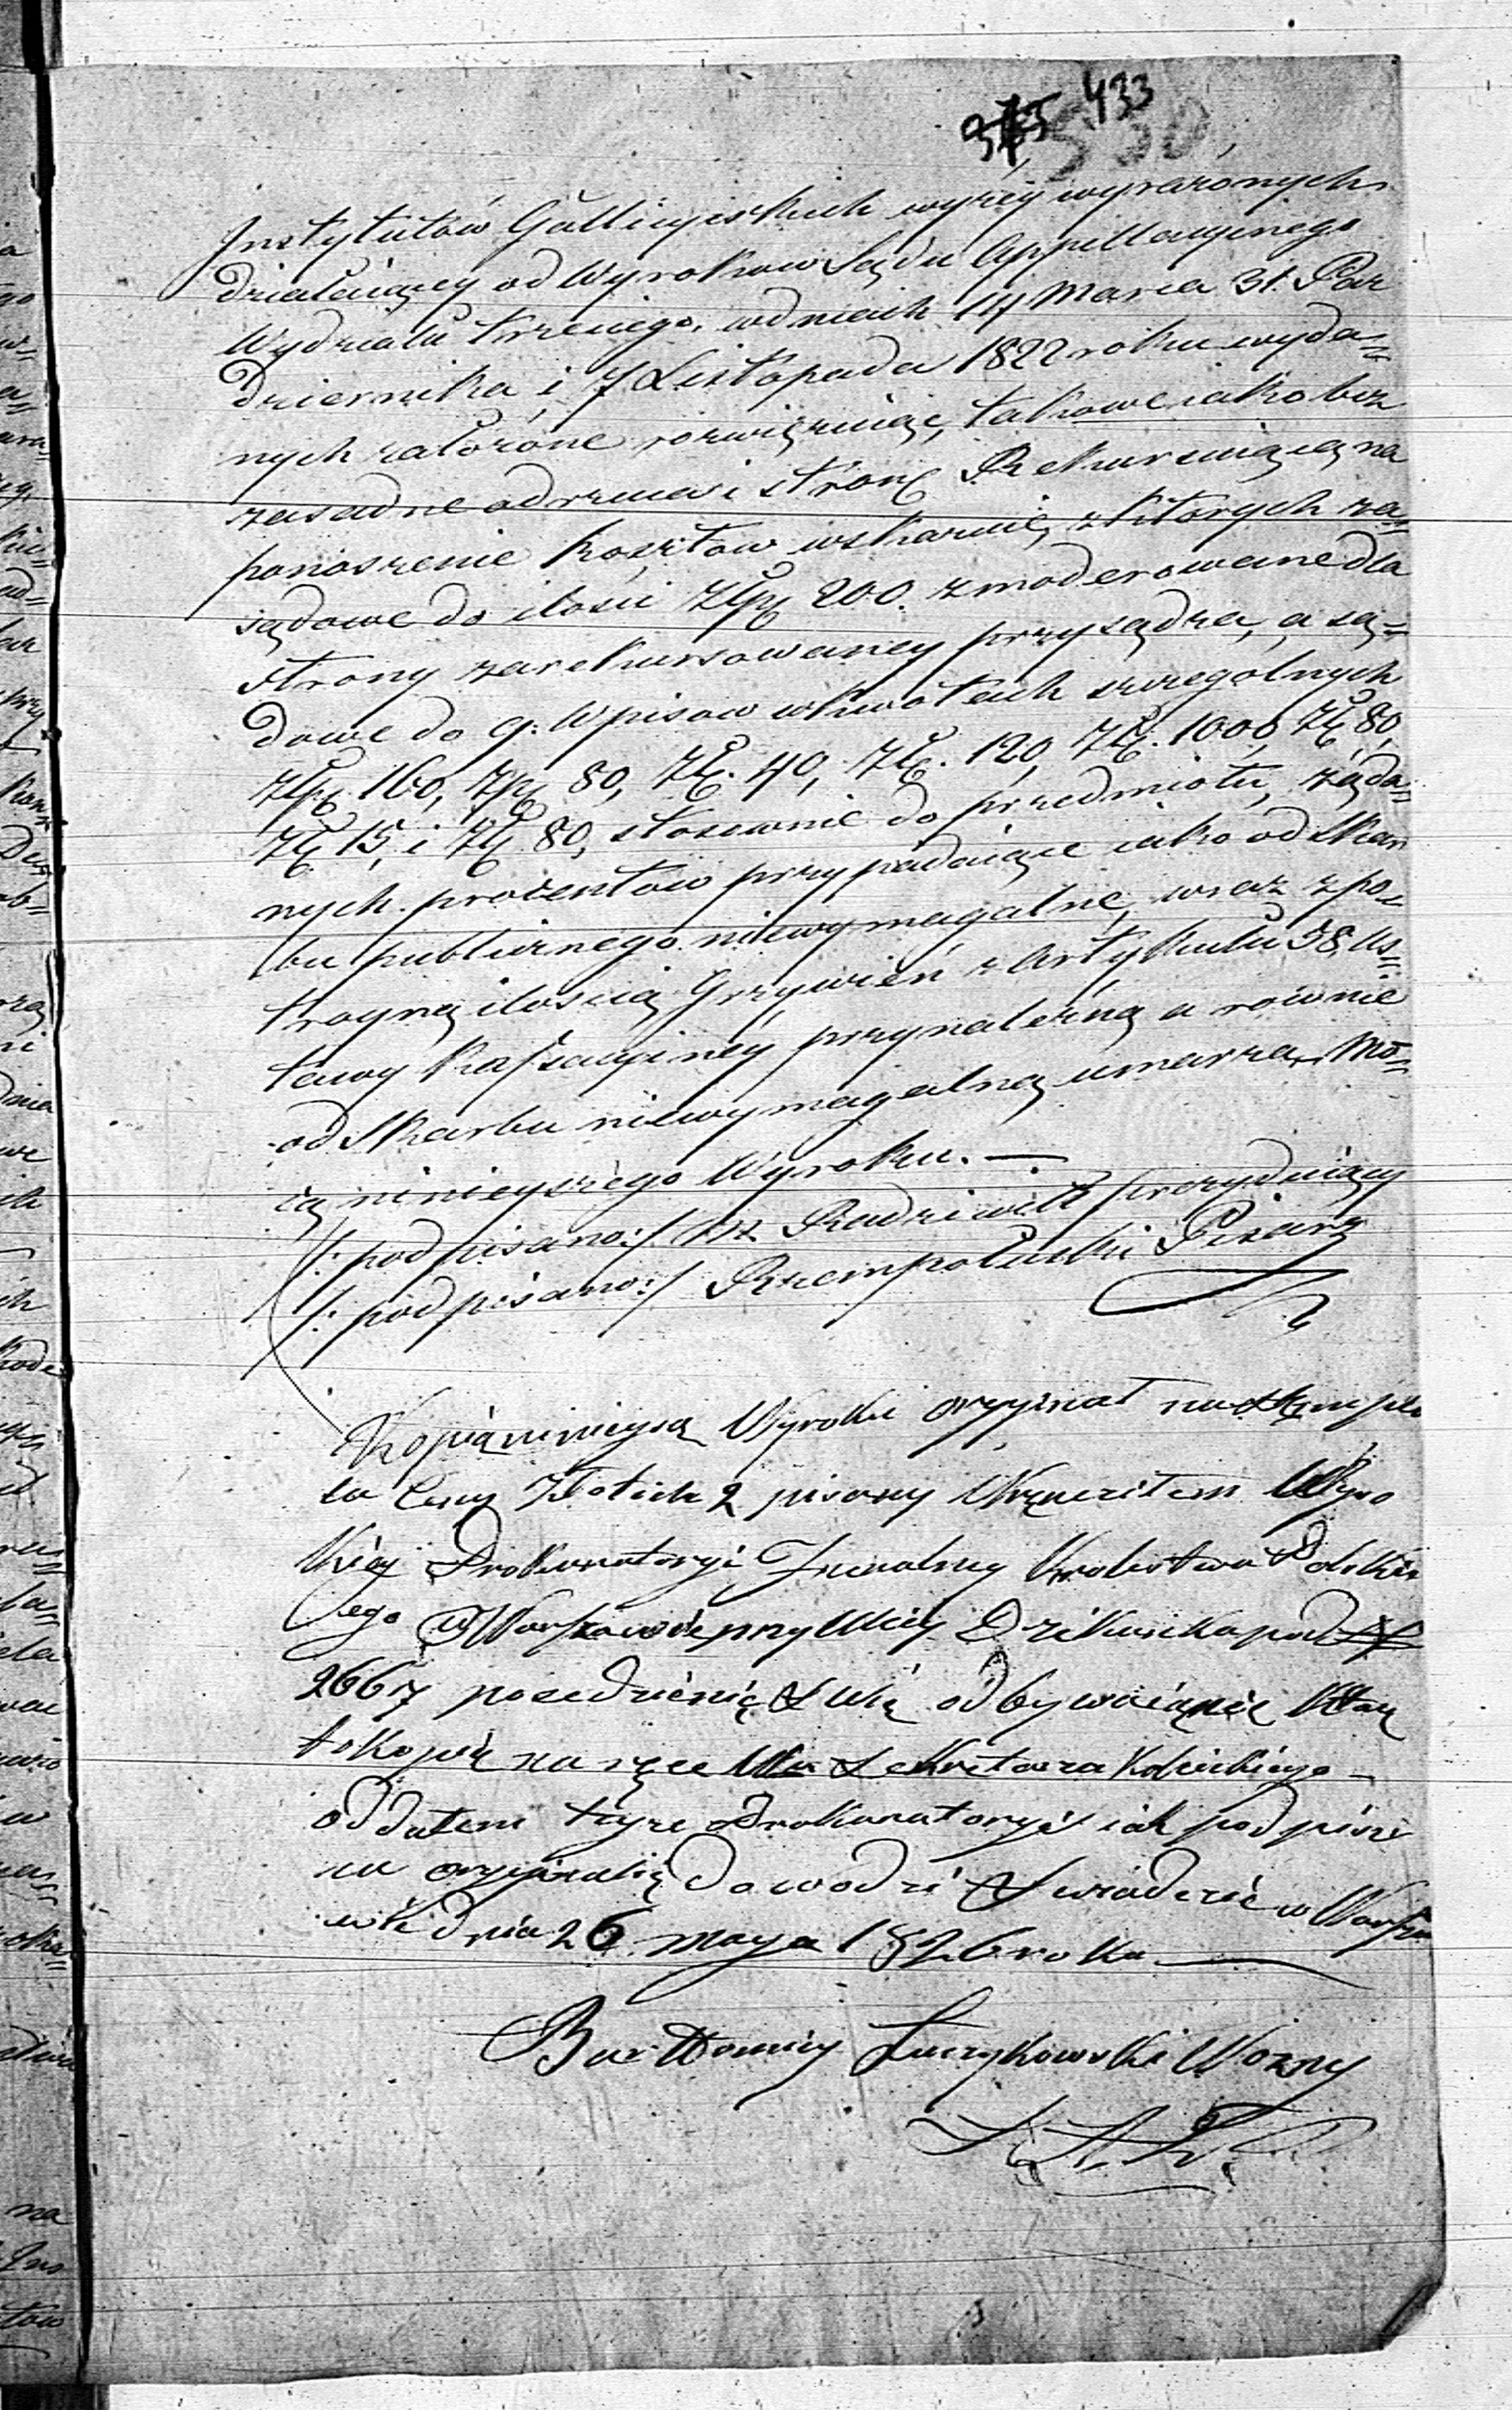 375 433
530
Instytutów Gallicyiskich wyżey wyrażonych
działaiącey od Wyroków Sądu Appellacyinego
Wydziału trzeciego, w dniach 14 Marca 31. Paź
dziernika i 7 Listopada 1822 roku wyda=
nych założone rozwiązuiąc, takowe iako bez
zasadne odrzuca i stronę Rekursuiącą na
ponoszenie kosztów wskazuie, z których za=
sądowe do ilości Złp. 200. zmoderowane dla
strony zarekursowaney przysądza, a są=
dowe do q: Wpisów w kwotach szczególnych
Złp. 160, Złp. 80, Zł. 40, Zł. 120, Zł. 1000, Zł. 80,
Zł. 15, i Zł. 80, stosownie do przedmiotu, żąda=
nych procentów przypadaiące iako od Skar
bu publicznego niewymagalne, wraz z po=
troyną ilością Grzywien z Artykułu 58, Us=
tawy Kassacyiney przynależną a równie
od Skarbu niewymagalną umarza, Mo=
cą ninieyszego Wyroku. —
/: podpisano:/ Radziwiłł prezyduiący
/: podpisano:/ Rzempołuski Pisarz
Kopią ninieyszą Wyroku oryginał na stemplu
Ceny Złotich 2 pisany Wręczyłem Wyso
kiey Prokuratoryi Jeneralney Królestwa Polskie
go w Warszawie przy Ulicy pod N
2667 posiedzenie Swe odbywaiącey Którą
to kopię na ręce Wo Sekretarza
oddałem teyże Prokuratoryi iak podpis
na oryginale dowodzi Świadczę w Warsza
wie dnia 26 maya 1826 roku
Bartłomiey Łuczykowski Woźny